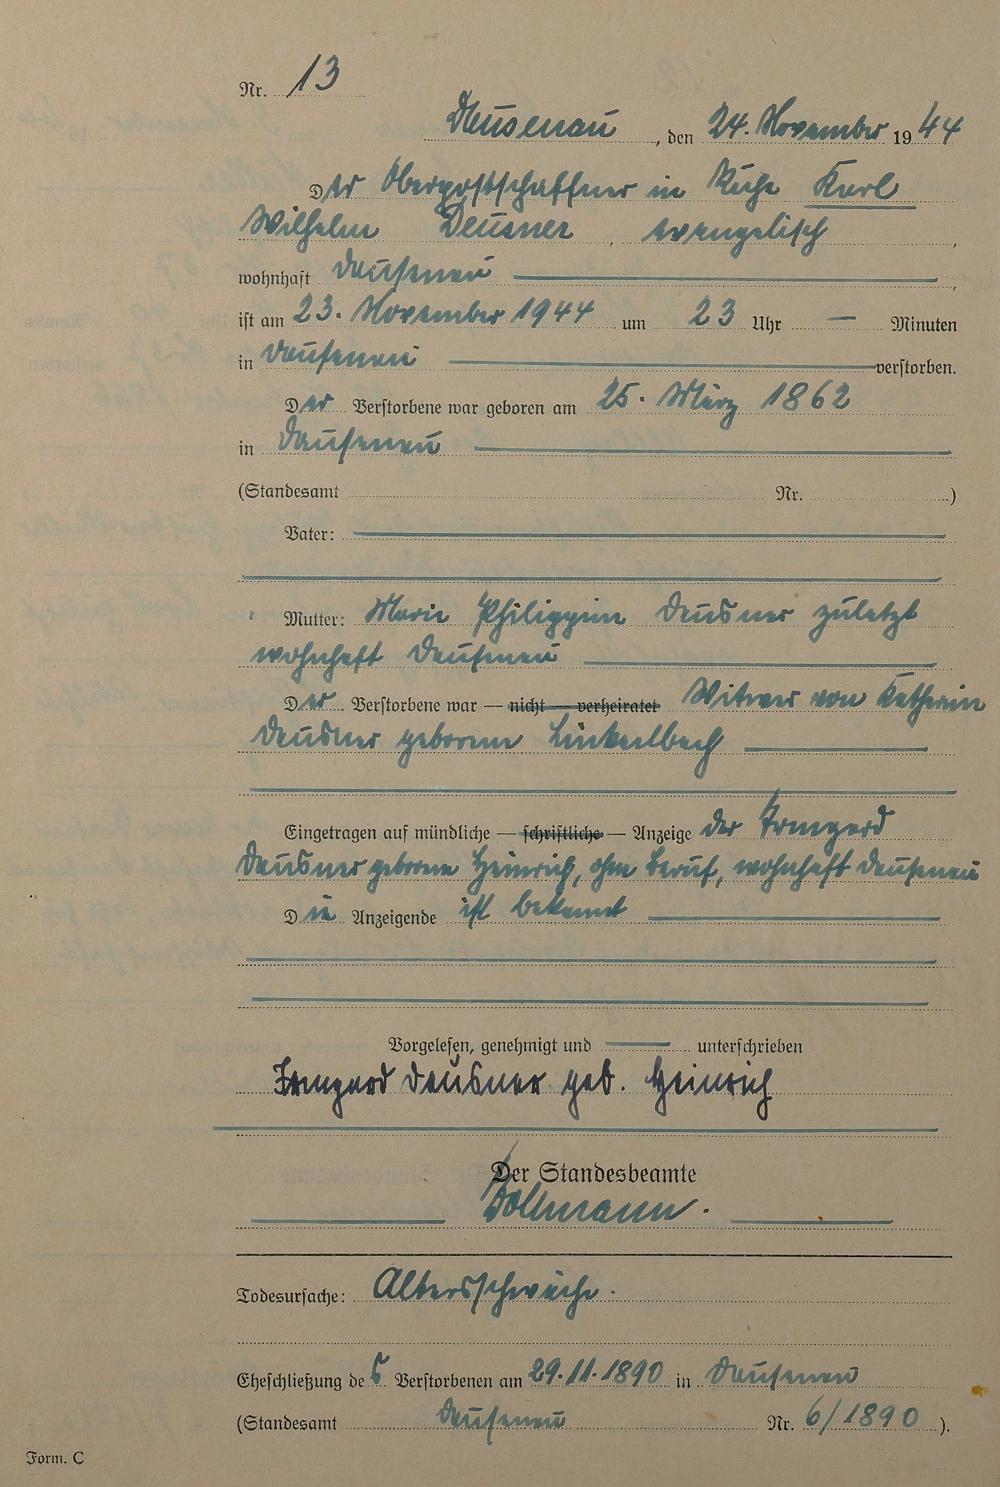 Nr. 13
Dausenau, den 24. November 1944
Der Oberpostschaffner in Ruhe Karl
Wilhelm Deusner, evangelisch,
wohnhaft Dausenau,
ist am 23. November 1944 um 23 Uhr — Minuten
in Dausenau verstorben.
Der Verstorbene war geboren am 25. März 1862
in Dausenau
(Standesamt Nr. )
Vater:
Mutter: Marie Philippine Deusner zuletzt
wohnhaft Dausenau
Der Verstorbene war — nicht — verheiratet Witwer von Katharina
Deusner geborene Linkelbach
Eingetragen auf mündliche — schriftliche — Anzeige der Irmgard
Deusner geborene Heinrich, ohne Beruf, wohnhaft Dausenau
Die Anzeigende ist bekannt
Vorgelesen, genehmigt und unterschrieben
Irmgard Deusner geb. Heinrich
Der Standesbeamte
Bollmann.
Todesursache: Altersschwäche.
Eheschließung des Verstorbenen am 29.11.1890 in Dausenau
(Standesamt Dausenau Nr. 6/1890).
Form. C